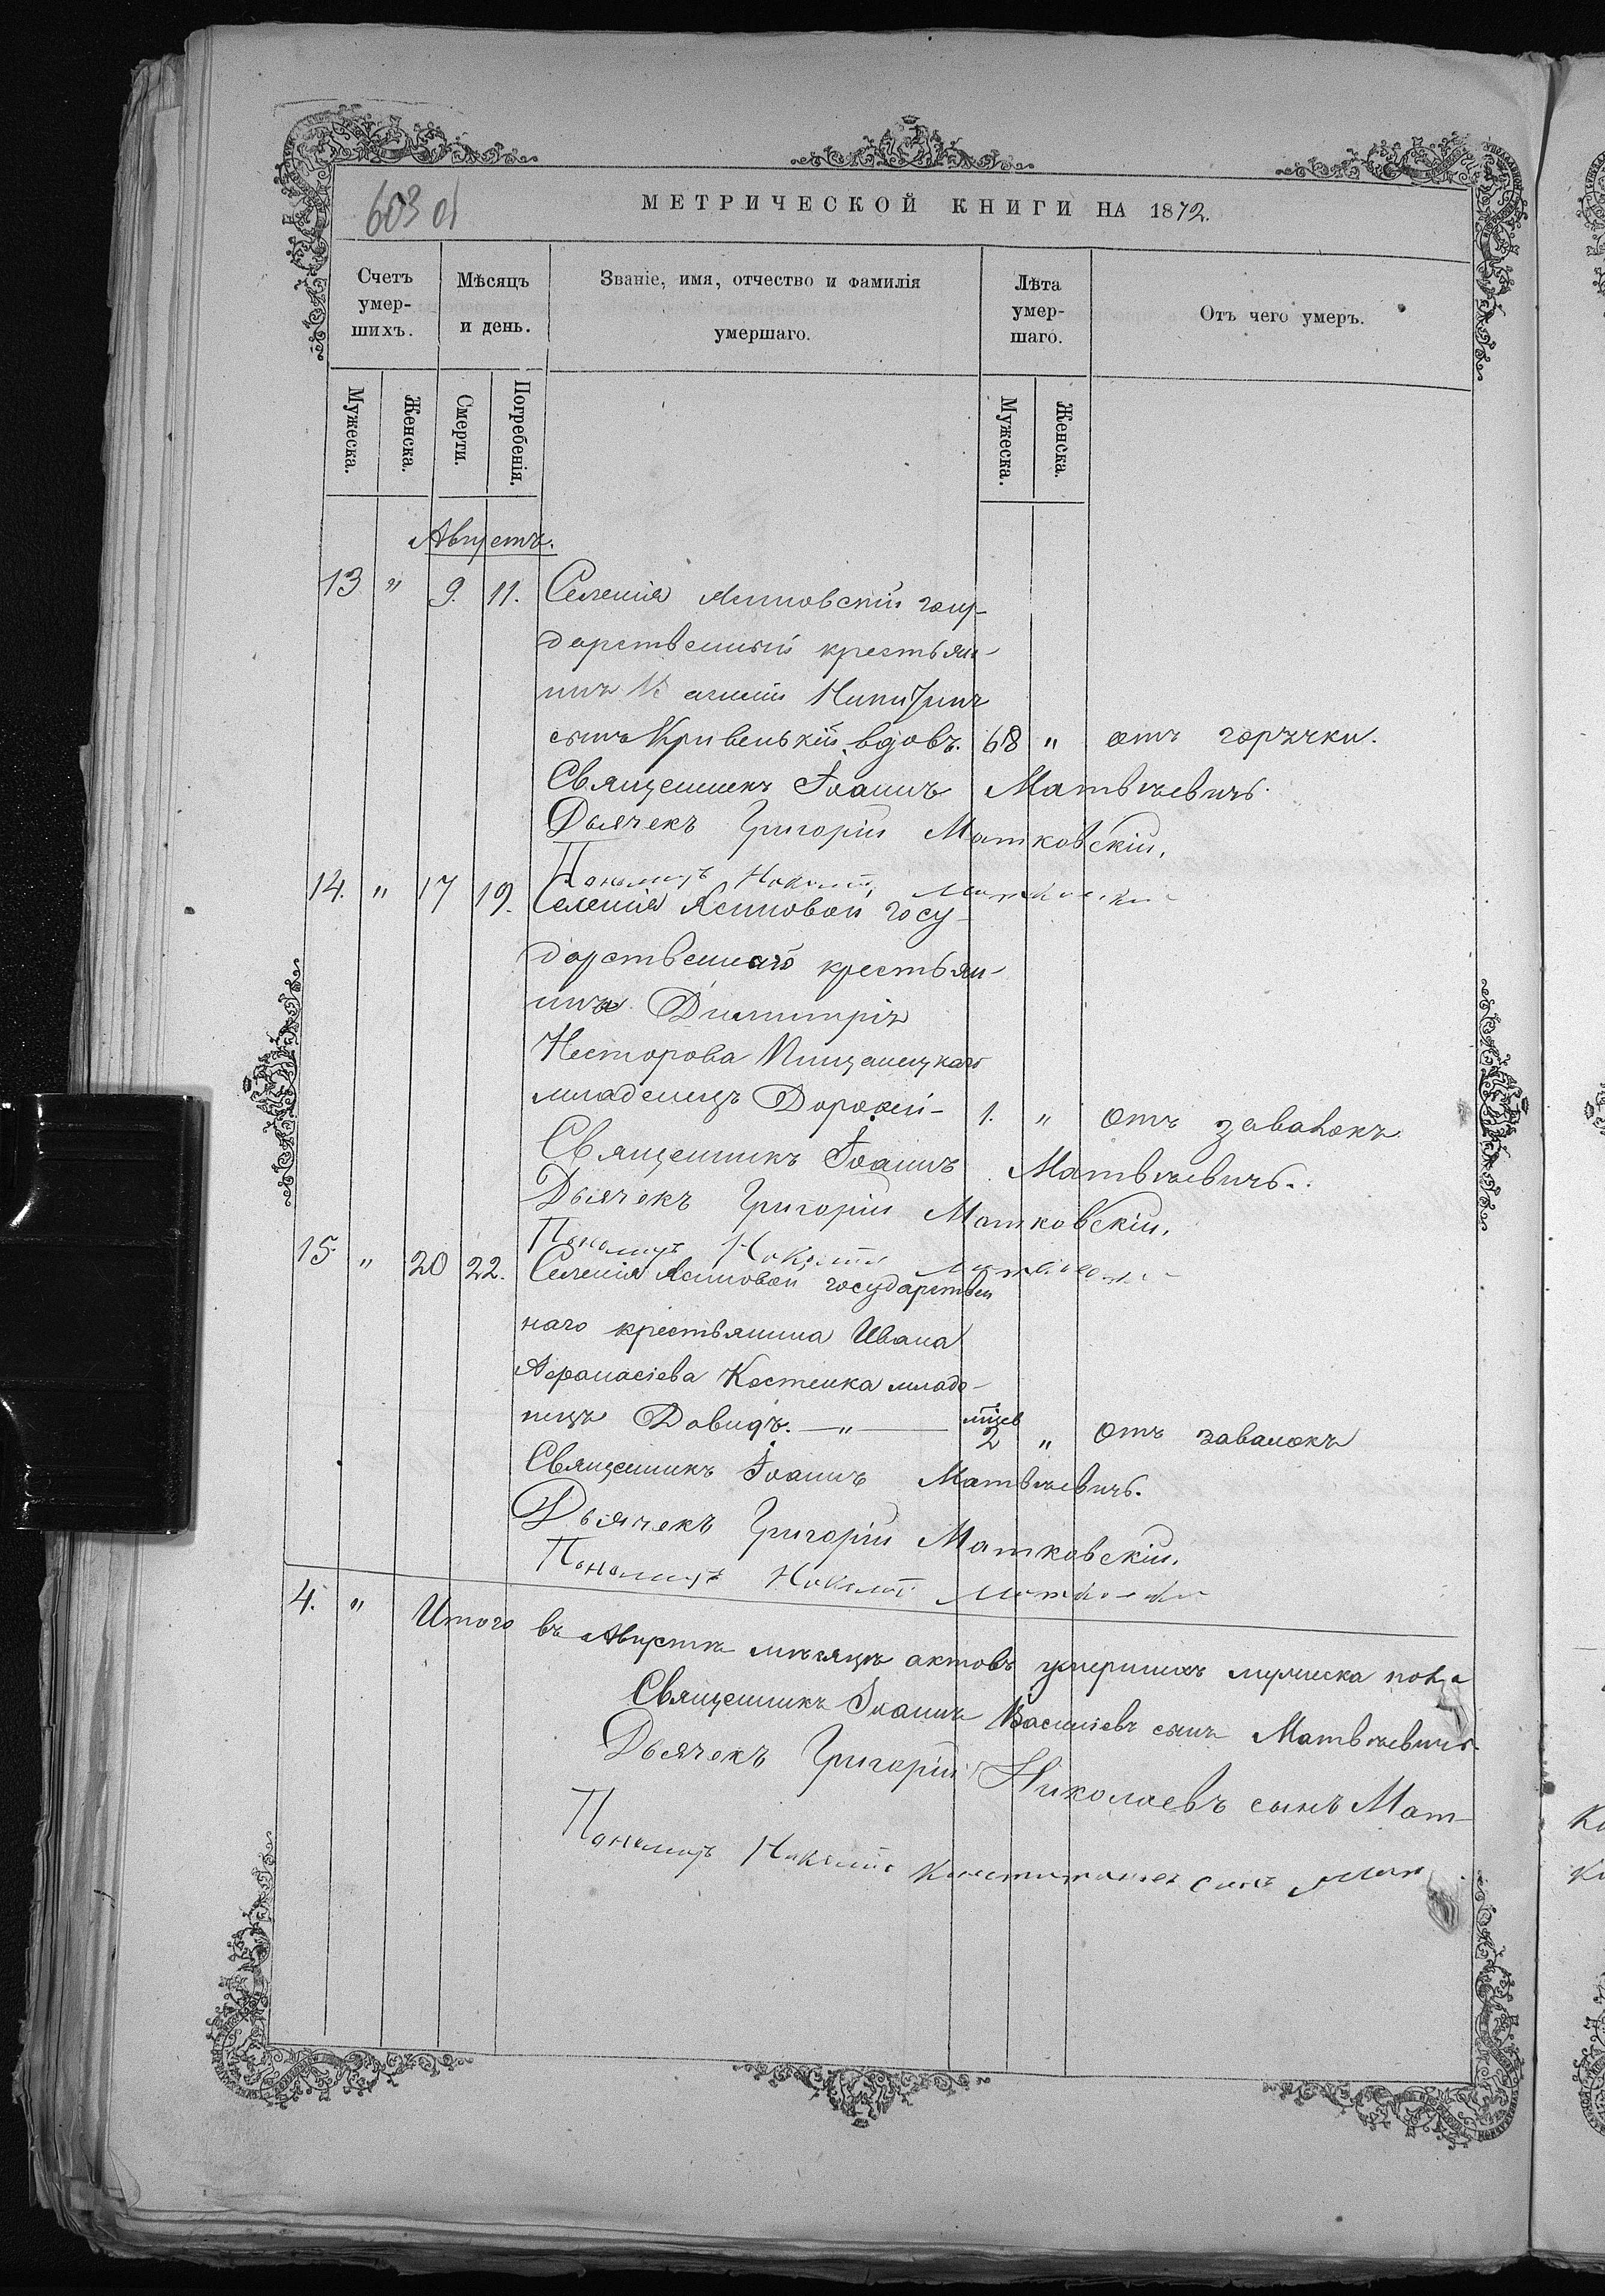 603 об
МЕТРИЧЕСКОЙ КНИГИ НА 1872.
Счетъ умер-шихъ. Мѣсяцъ и день. Званіе, имя, отчество и фамилія умершаго. Лѣта умер-шаго. Отъ чего умеръ.
Мужеска. Женска. Смерти. Погребенія. Мужеска. Женска.
Августъ.
13 " 9. 11. Селенія Ясиновскій госу-
дарственный крестьян-
инъ Никитинъ
сынъ Кривенькій вдовъ. 68 " отъ горячки.
Священникъ Іоаннъ Матвѣевичъ.
Дьячекъ Григорій Матковскій.
Пономарь
14. " 17 19. Селенія Ясиновой госу-
дарственнаго крестьян-
ина Димитрія
Несторова Пищанецкаго
младенецъ Дорофей- 1. " Отъ завалокъ
Священникъ Іоаннъ Матвѣевичъ.
Дьячекъ Григорій Матковскій.
Пономарь
15. " 20 22. Селенія Ясиновой государствен
наго крестьянина Ивана
Афанасіева Костенка младе-
нецъ Давидъ. — " — мѣсяц 2 " Отъ завалокъ
Священникъ Іоаннъ Матвѣевичъ.
Дьячекъ Григорій Матковскій.
Пономарь
4. " Итого въ Августѣ мѣсяцѣ актовъ умершихъ мужеска пола
Священникъ Іоаннъ Васильевъ сынъ Матвѣевичъ.
Дьячекъ Григорій Николаевъ сынъ Мат-
Пономарь Константиновъ сынъ Мат